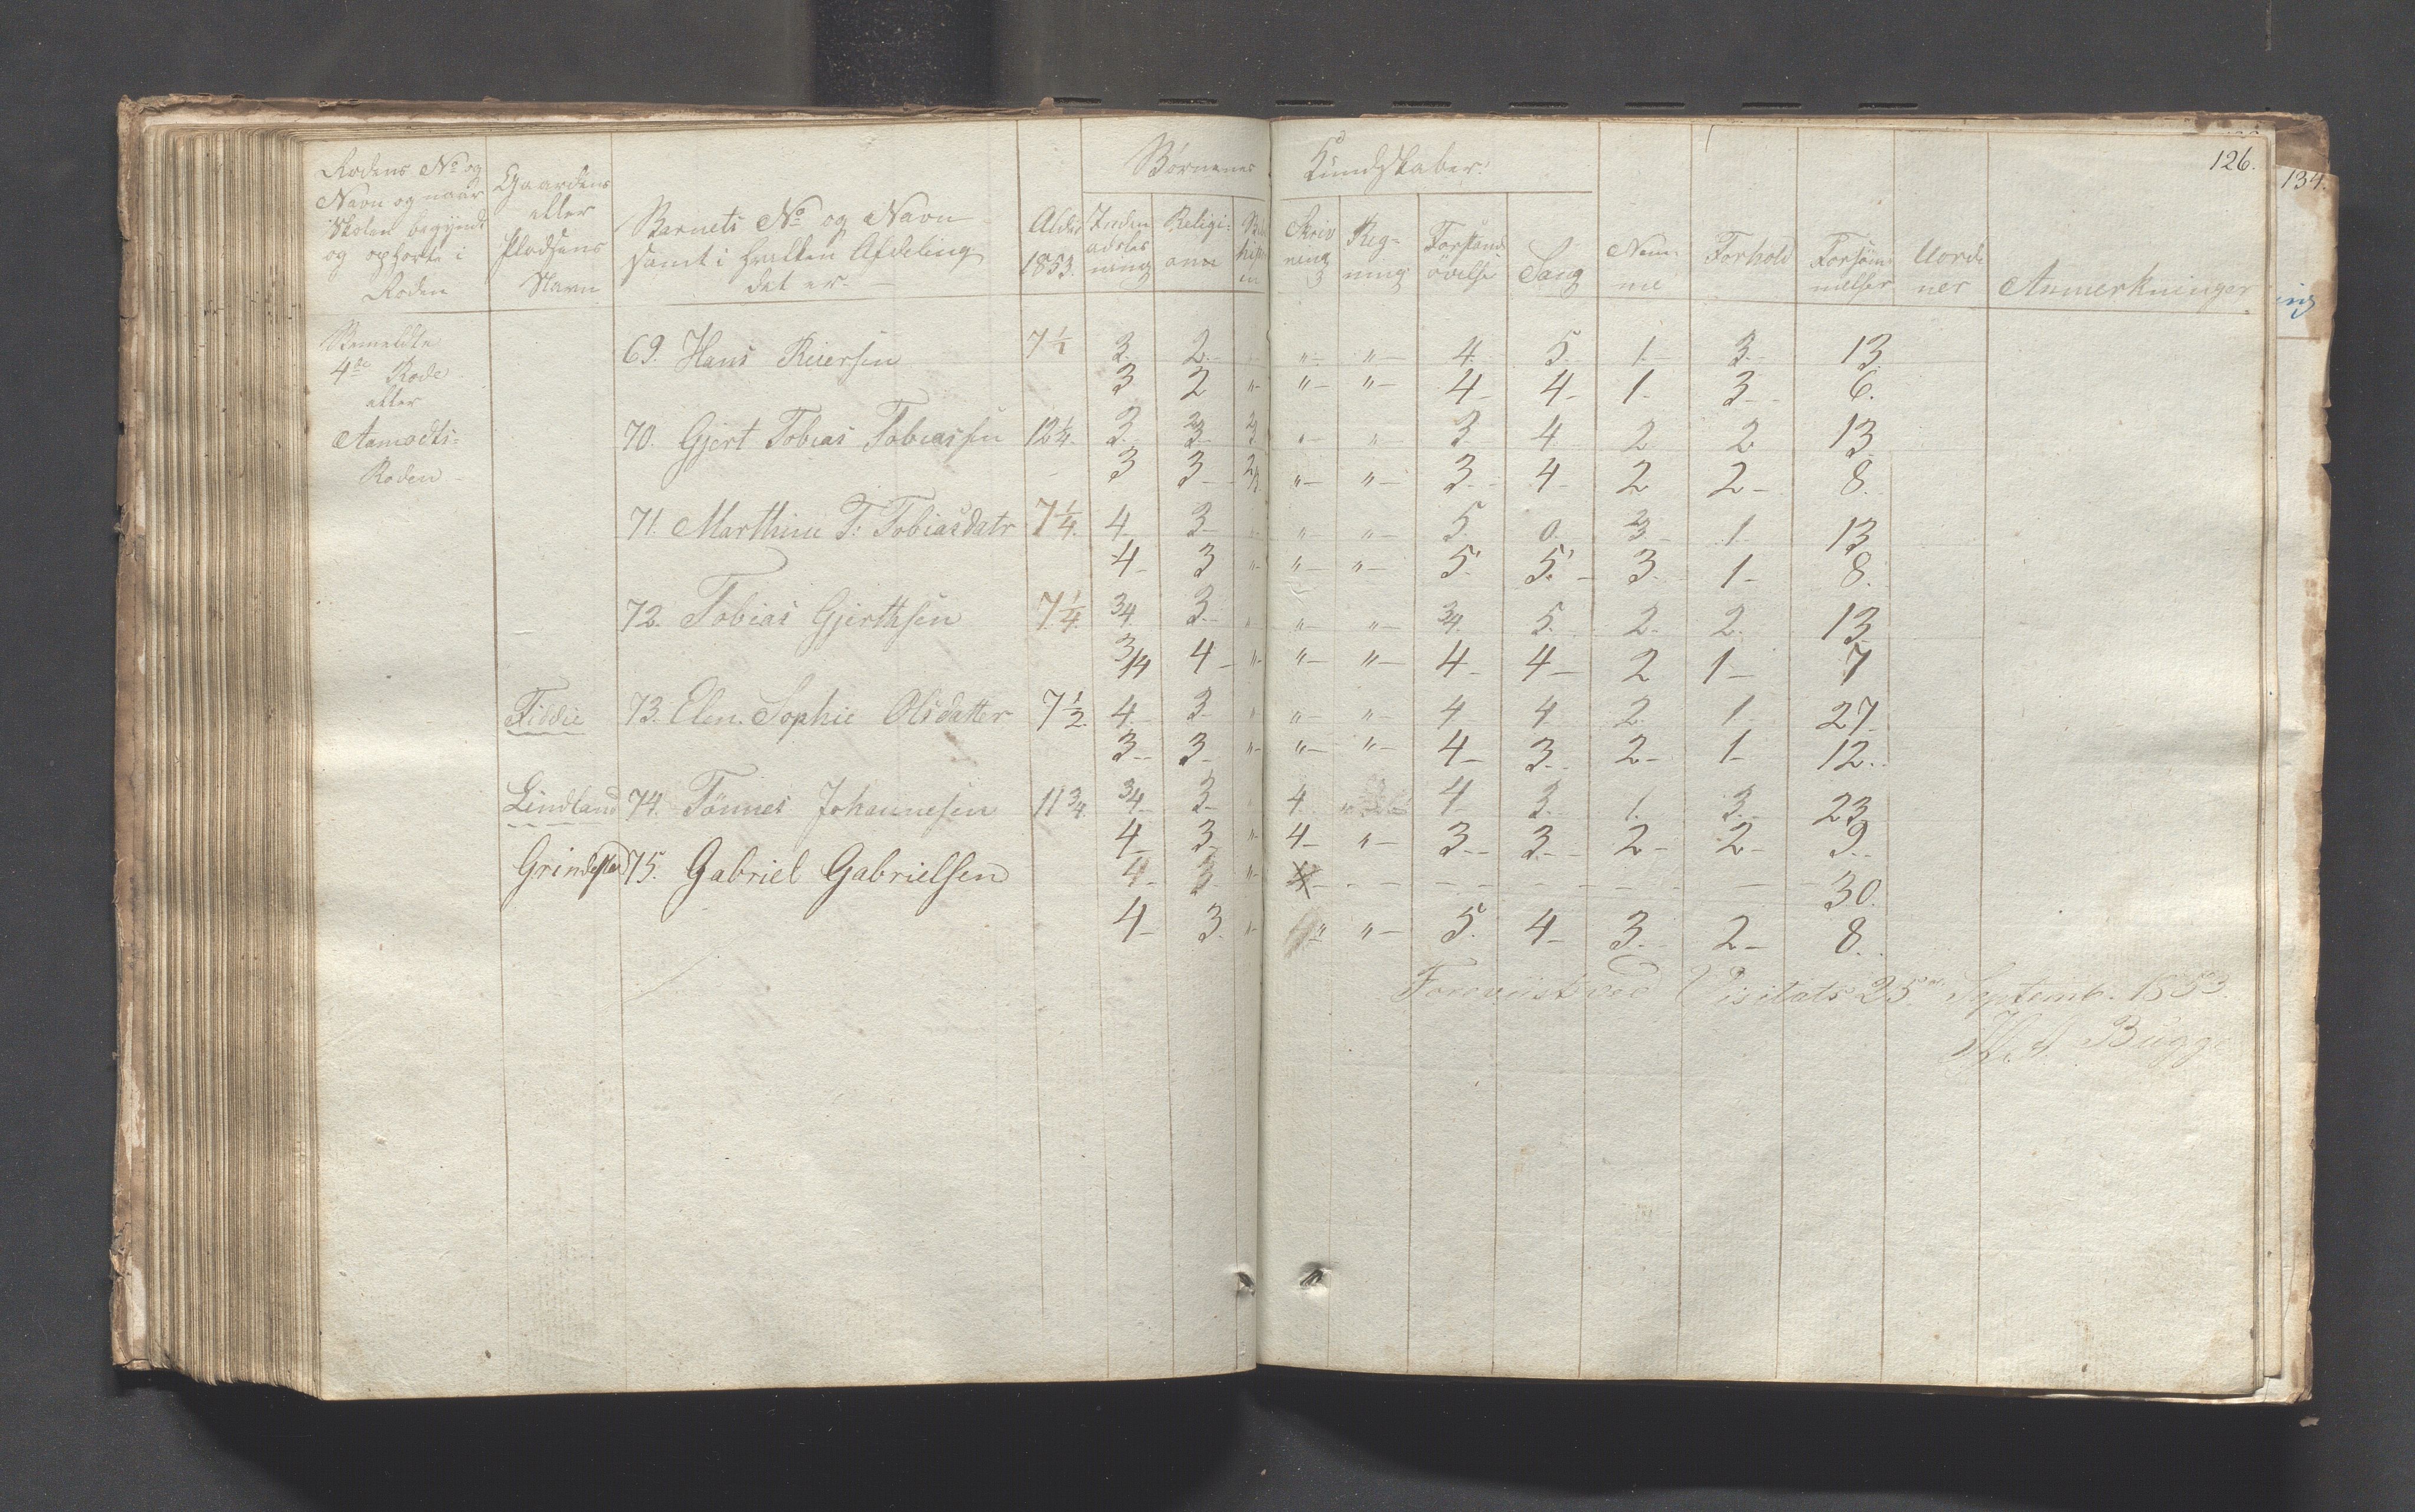 126.
134.
Børnenes Kundskaber:
Rodens No og Navn og naar Skolen begyndt og ophørte i Roden
Gaardens eller Pladsens Navn
Barnets No og Navn samt i hvilken Afdeling det er
Alder 1853.
Inden adslæs ning
Religi: onen
Skriv ning
Reg= ning
Forstands øvelse
Sang
Nem= me
Forhold
Forsøm melser
Uorde ner
Anmerkninger
Bemeldte
4de Rode
eller
Aamodts=
Roden
69. Hans Reiersen 3 2 " " 4 5 1 3 13
3 2 " " " 4 4 1 3 6.
70. Gjert Tobias Tobiassen 12 1/4 3 3 2/3 " " 3 4 2 2 13
3 3 2/3 " " 3 4 2 2 8.
71. Marthine T. Tobiasdatr 7 1/4 4 3 " " 5 0. 3 1 13
4 3 " " " 5 5 3 1 8.
72. Tobias Gjerthsen 7 1/4 3/4 3 " " " 3/4 5 2 2 13
3/4 4 " " " 4 4 2 1 7
Fiddie 73. Elen. Sophie Olsdatter 7 1/2 4 3 " " " 4 4 2 1 27
3 3 " " " 4 3 2 1 12.
Lindland 74. Tønnes Johannesen 11 3/4 3/4 3 4 " 4 3 1 3 23
4 3 " 4 " 3 3 2 2 9
75. Gabriel Gabrielsen 4 3 " 30.
4 3 " " " 5 4 3 2 8.
Foreviist ved Visitats 25de Septemb. 1853.
Bugge